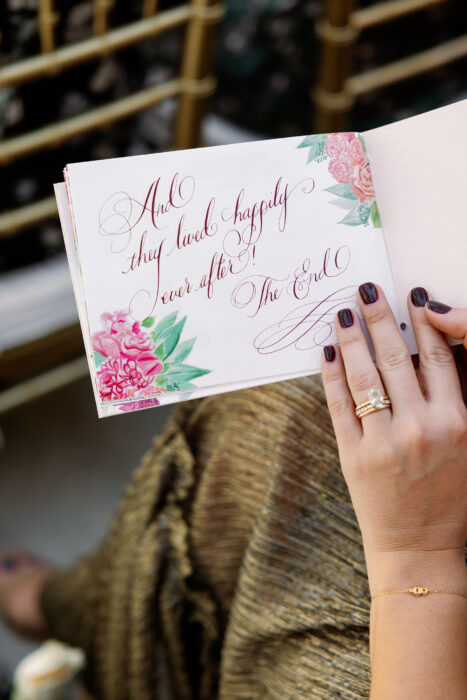 And
they lived happily
ever after!
The End